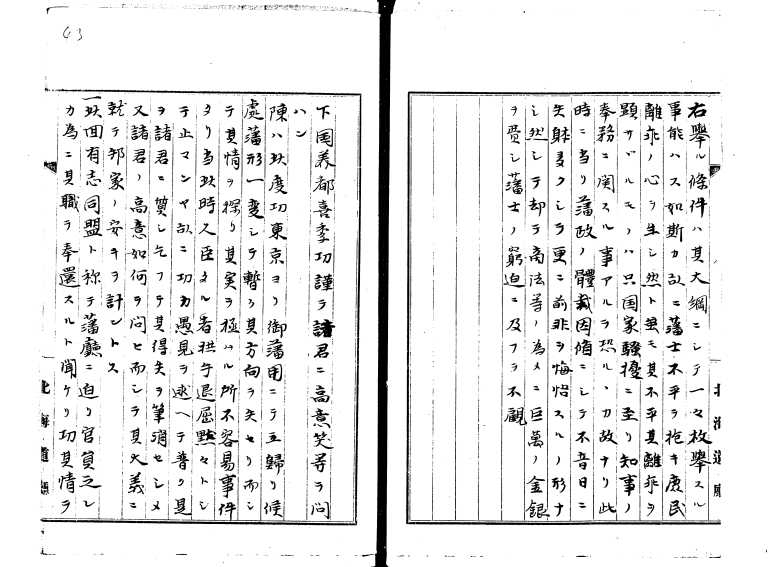 右舉ル條件ハ其大綱ニシテ一々枚舉スル
事能ハス如斯カ故ニ藩士不平ヲ抱キ農民
離乖ノ心ヲ生シ然ト雖モ其不平其離乖ヲ
顕サヾルモノハ只国家騒擾ニ至リ知事ノ
奉務ニ関スル事アルヲ恐ルヽカ故ナリ此
時ニ当リ藩政ノ體裁因循ニシテ不音日ニ
失躰多クシテ更ニ前非ヲ悔悟スルノ形ナ
シ然シテ却テ商法等ノ為メニ巨萬ノ金銀
ヲ費シ藩士ノ窮迫ニ及フヲ不覩
北海道廳
63
下国美都喜季功謹テ諸君ニ高意笑尋ヲ問
ハン
陳ハ此度功東京ヨリ御藩用ニテ立歸リ候
處藩形一変シテ暫ク其方向ヲ失セリ而シ
テ其情ヲ探リ其実ヲ極ハル所不容易事件
タリ当此時人臣タル者拱手退屈黙々トシ
テ止マンヤ故ニ功カ愚見ヲ述ヘテ普ク是
ヲ諸君ニ質シ乞フテ其得失ヲ筆硝セシメ
又諸君ノ高意如何ヲ問ヒ而シテ其大義ニ
就テ邦家ノ安キヲ計ントス
一此回有志同盟ト称テ藩廳ニ迫リ官員之レ
カ為ニ其職ヲ奉還スルト聞ケリ功其情ヲ
北海道廳